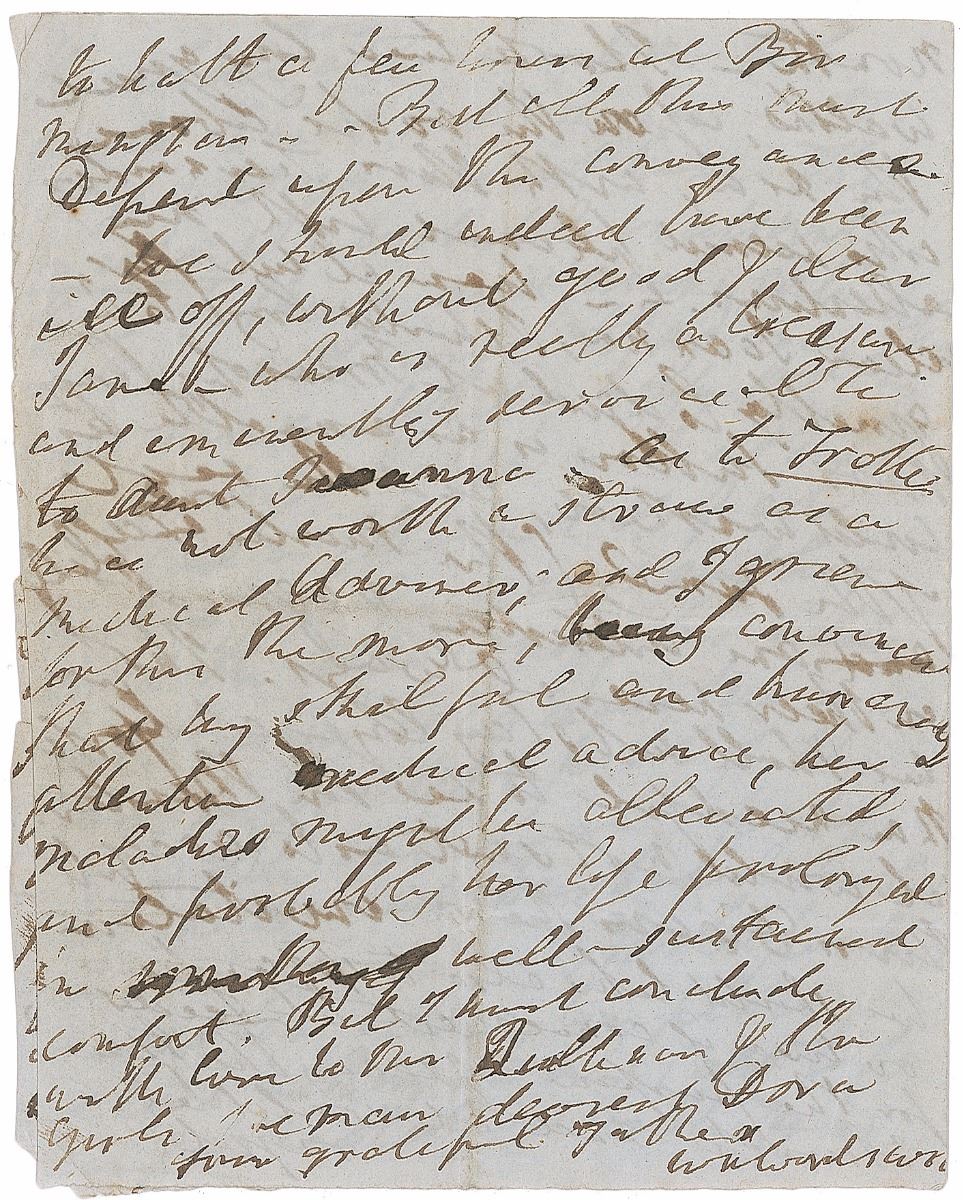 to halt a few hours at Bir
mingham - - But all this must
Depend upon the conveyances.
- We should indeed have been
ill off, without good & dear
Jane - who is really a treasure
and eminently serviceable
to Aunt Joanna - As to Trotter
he is not worth a straw as a
medical Adviser; and I grieve
for this the more, being convinced
that by skilful and
attentive medical advice, her
maladies might be alleviated,
and probably her life prolonged
in well-sustained
comfort. But I must conclude
with love to Mr Quillinan & the
Girls. I remain dearest Dora
your grateful Father
Wm Wordsworth